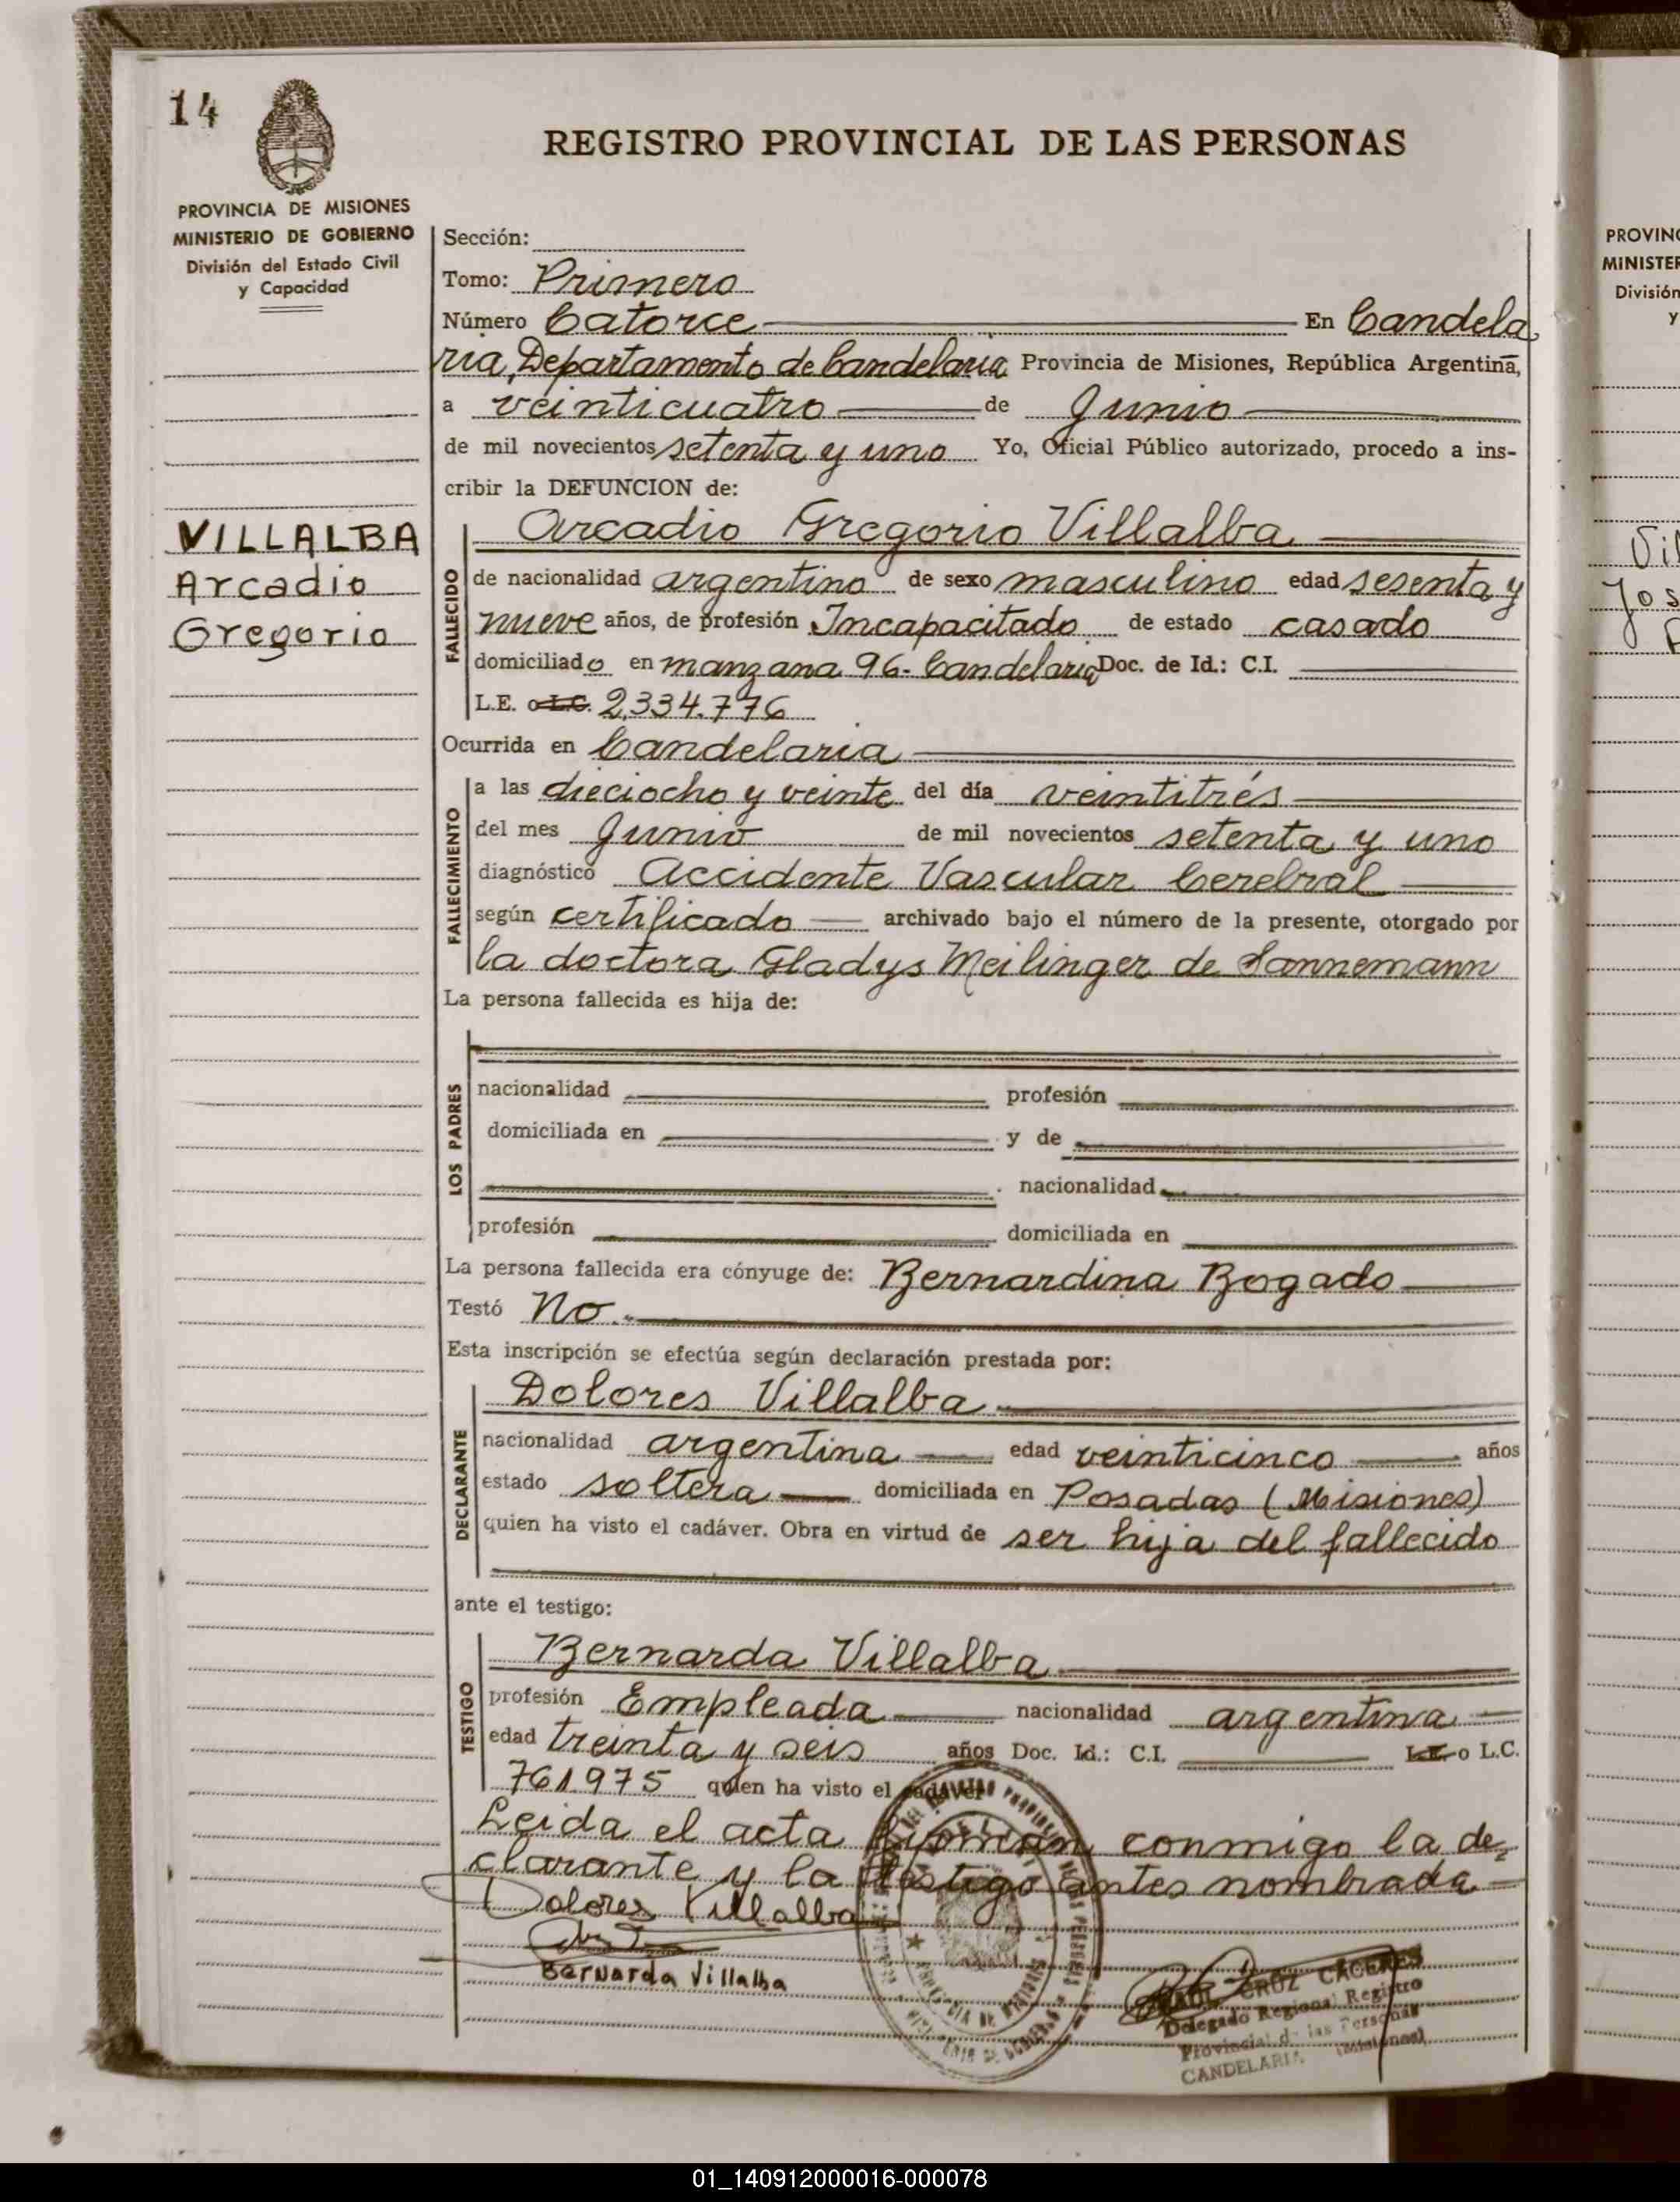 14
REGISTRO PROVINCIAL DE LAS PERSONAS
PROVINCIA DE MISIONES
MINISTERIO DE GOBIERNO
División del Estado Civil
y Capacidad
VILLALBA
Arcadio
Gregorio
Sección:
Tomo: Primero
Número Catorce En Candela
ria, Departamento de Candelaria Provincia de Misiones, República Argentina,
a veinticuatro de Junio
de mil novecientos setenta y uno Yo, Oficial Público autorizado, procedo a ins-
cribir la DEFUNCION de:
Arcadio Gregorio Villalba
FALLECIDO
de nacionalidad argentino de sexo masculino edad sesenta y
nueve años, de profesión Incapacitado de estado casado
domiciliado en manzana 96- Candelaria Doc. de Id.: C.I.
L.E. o L.C. 2.334.776
Ocurrida en Candelaria
FALLECIMIENTO
a las dieciocho y veinte del día veintitrés
del mes Junio de mil novecientos setenta y uno
diagnóstico Accidente Vascular Cerebral
según certificado archivado bajo el número de la presente, otorgado por
la doctora Gladys Meilinger de Sannemann
La persona fallecida es hija de:
LOS PADRES
nacionalidad profesión
domiciliada en y de
nacionalidad
profesión domiciliada en
La persona fallecida era cónyuge de: Bernardina Bogado
Testó No.-
Esta inscripción se efectúa según declaración prestada por:
Dolores Villalba
DECLARANTE
nacionalidad argentina edad veinticinco años
estado soltera domiciliada en Posadas (Misiones)
quien ha visto el cadáver. Obra en virtud de ser hija del fallecido
ante el testigo:
Bernarda Villalba
TESTIGO
profesión Empleada nacionalidad argentina
edad treinta y seis años Doc. Id.: C.I. L.E. o L.C.
761975 quien ha visto el cadáver
Leida el acta firman conmigo la de-
clarante y la testigo antes nombrada
Dolores Villalba
Bernarda Villalba
RAUL CRUZ CACERES
Delegado Regional Registro
Provincial de las Personas
CANDELARIA (Misiones)
PROVINC
MINISTER
División
y
Vil
Jos
01_140912000016-000078